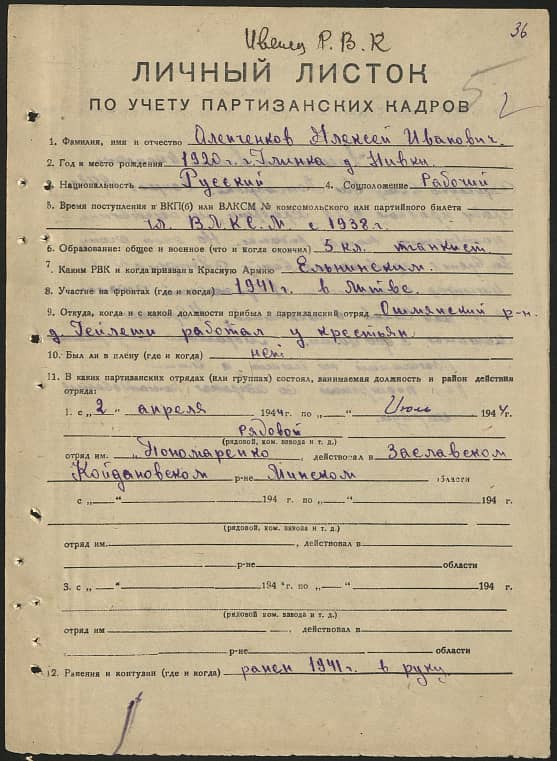 36
Ивенец Р.В.К
ЛИЧНЫЙ ЛИСТОК
5 2
ПО УЧЕТУ ПАРТИЗАНСКИХ КАДРОВ
1. Фамилия, имя и отчество Алепченков Алексей Иванович.
2. Год и место рождения 1920 г. г. Глинка д. Нивки.
3. Национальность Русский 4. Соцположение Рабочий
5. Время поступления в ВКП(б) или ВЛКСМ № комсомольского или партийного билета —
чл. ВЛКСМ с 1938г.
6. Образование: общее и военное (что и когда окончил) 5 кл. танкист
7. Каким РВК и когда призван в Красную Армию Ельнинским.
8. Участие на фронтах (где и когда) 1941 г. в Литве.
9. Откуда, когда и с какой должности прибыл в партизанский отряд Ошмянский р-н.
д. Гейлеши работал у крестьян
10. Был ли в плену (где и когда) нет
11. В каких партизанских отрядах (или группах) состоял, занимаемая должность и район действия
отряда:
1. с „2“ апреля 1944 г. по „—“ Июль 1944 г.
рядовой
(рядовой, ком. взвода и т. д.)
отряд им. „Пономаренко, действовал в Заславском
Койдановском р-не Минском области
с „—“ 194 г. по „—“ 194 г.
(рядовой, ком. взвода и т. д.)
отряд им. , действовал в
р-не области
3. с „—“ 194 г. по „—“ 194 г.
(рядовой, ком. взвода и т. д.)
отряд им , действовал в
р-не области
12. Ранения и контузии (где и когда) ранен 1941 г. в руку.